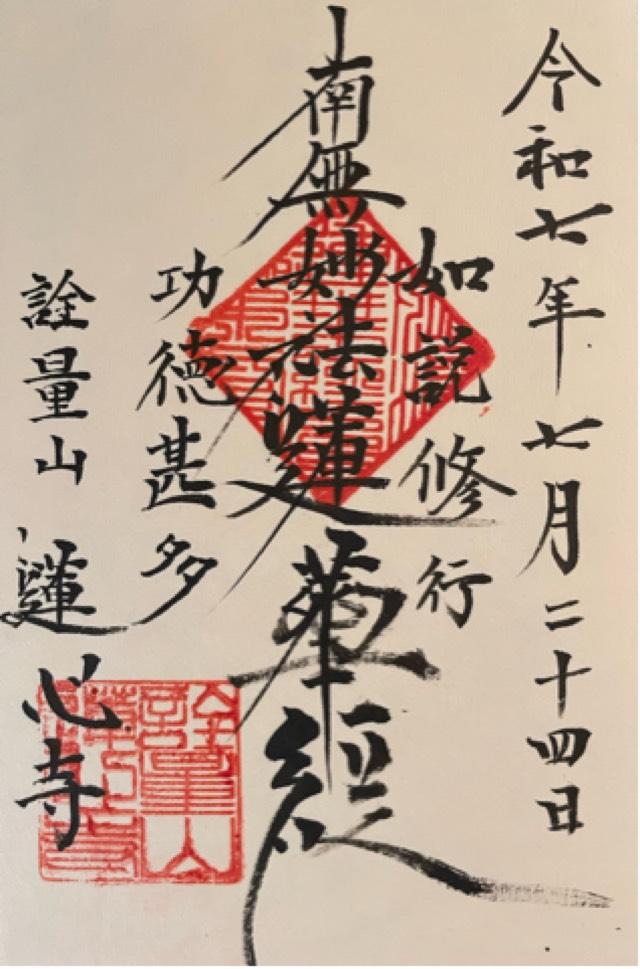 令和七年七月二十四日
如説修行
南無妙法蓮華経
功徳甚多
詮量山 蓮心寺